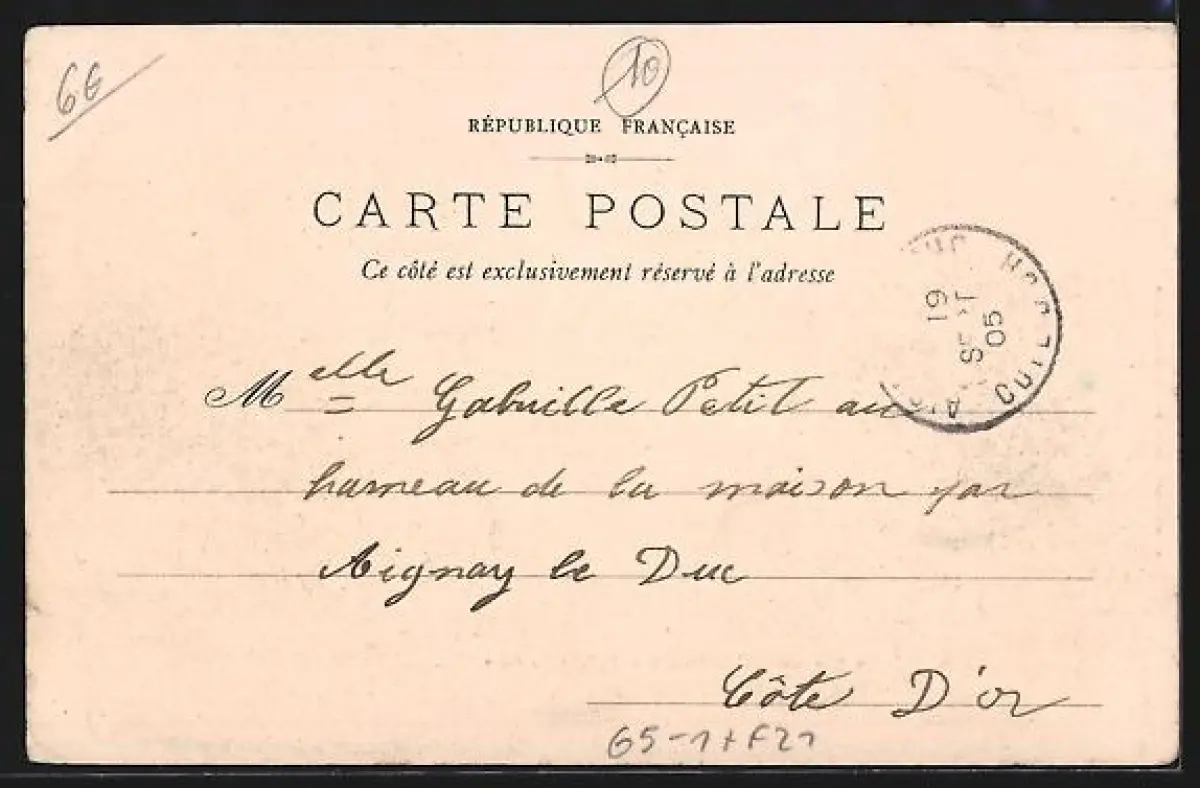 6€
10
RÉPUBLIQUE FRANÇAISE
CARTE POSTALE
Ce côté est exclusivement réservé à l'adresse
19
SEPT
05
Melle Gabrielle Petit au
hameau de la maison par
Aignay le Duc
Côte D'or
65-1+F21